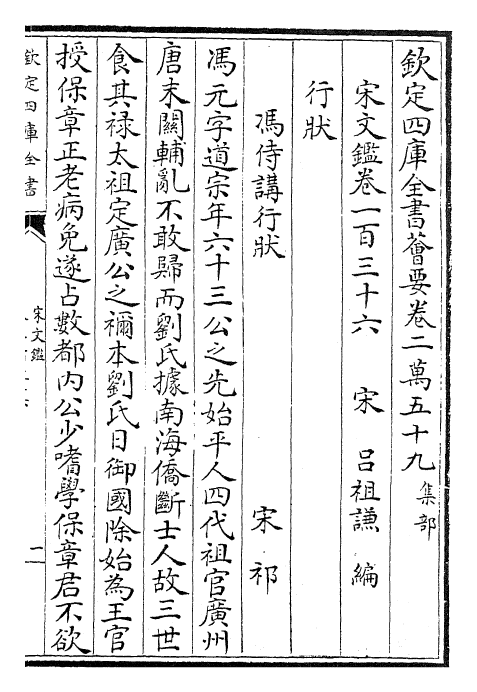 欽定四庫全書薈要卷二萬五十九 集部
宋文鑑卷一百三十六 宋 吕祖謙 編
行狀
馮侍講行狀 宋 祁
馮元字道宗年六十三公之先始平人四代祖官廣州
唐末關輔亂不敢歸而劉氏據南海僑斷士人故三世
食其禄太祖定廣公之禰本劉氏日御國除始為王官
授保章正老病免遂占數都内公少嗜學保章君不欲
欽定四庫全書
宋文鑑